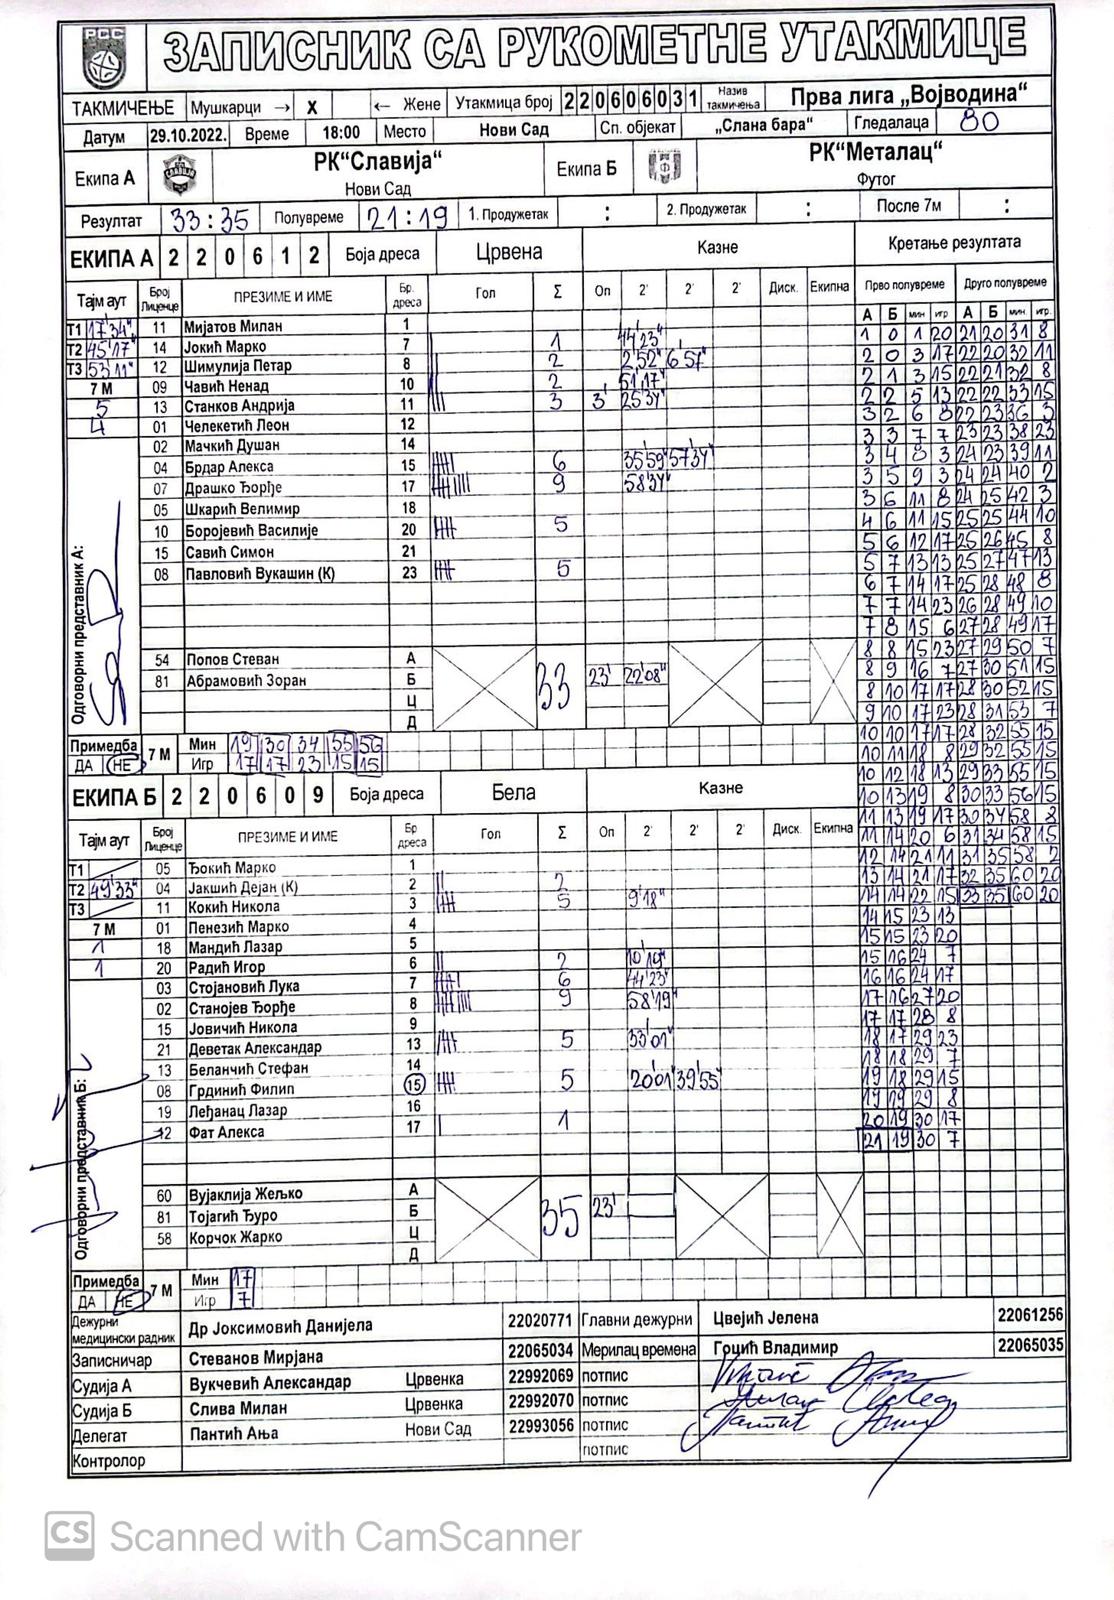 РСС
ЗАПИСНИК СА РУКОМЕТНЕ УТАКМИЦЕ
ТАКМИЧЕЊЕ Мушкарци → X ← Жене Утакмица број 220606031 Назив такмичења Прва лига „Војводина“
Датум 29.10.2022. Време 18:00 Место Нови Сад Сп. објекат „Слана бара“ Гледалаца 80
Екипа А РК“Славија“ Нови Сад Екипа Б РК“Металац“ Футог
Резултат 33:35 Полувреме 21:19 1. Продужетак : 2. Продужетак : После 7м :
ЕКИПА А 2 2 0 6 1 2 Боја дреса Црвена Казне Кретање резултата
Тајм аут Број Лиценце ПРЕЗИМЕ И ИМЕ Бр. дреса Гол Σ Оп 2' 2' 2' Диск. Екипна Прво полувреме Друго полувреме
А Б мин игр А Б мин игр
Т1 17'34" 11 Мијатов Милан 1
Т2 45'17" 14 Јокић Марко 7 1 44'23"
Т3 53'11" 12 Шимулија Петар 8 2 2'52" 6'57"
7 М 09 Чавић Ненад 10 2 51'17"
5 13 Станков Андрија 11 3 3' 25'34"
4 01 Челекетић Леон 12
02 Мачкић Душан 14
04 Брдар Алекса 15 6 35'59" 57'34"
07 Драшко Ђорђе 17 9 58'34"
05 Шкарић Велимир 18
10 Боројевић Василије 20 5
15 Савић Симон 21
08 Павловић Вукашин (К) 23 5
Одговорни представник А:
54 Попов Стеван А
81 Абрамовић Зоран Б 33 23' 22'08"
Ц
Д
Примедба ДА НЕ 7 М Мин 19 30 34 55 56
Игр 17 17 23 15 15
1 0 1 20 21 20 31 8
2 0 3 17 22 20 32 11
2 1 3 15 22 21 32 8
2 2 5 13 22 22 33 15
3 2 6 8 22 23 36 3
3 3 7 7 23 23 38 23
3 4 8 3 24 23 39 11
3 5 9 3 24 24 40 2
3 6 11 8 24 25 42 3
4 6 11 15 25 25 44 10
5 6 12 17 25 26 45 8
5 7 13 13 25 27 47 13
6 7 14 17 25 28 48 8
7 7 14 23 26 28 49 10
7 8 15 6 27 28 49 17
8 8 15 23 27 29 50 7
8 9 16 7 27 30 51 15
8 10 17 17 28 30 52 15
9 10 17 23 28 31 53 7
10 10 17 17 28 32 55 15
10 11 18 8 29 32 55 15
10 12 18 13 29 33 55 15
10 13 19 8 30 33 56 15
11 13 19 17 30 34 58 8
11 14 20 6 31 34 58 15
12 14 21 11 31 35 58 2
13 14 21 17 32 35 60 20
14 14 22 15 33 35 60 20
14 15 23 13
15 15 23 20
15 16 24 7
16 16 24 17
17 16 27 20
17 17 28 8
18 17 29 23
18 18 29 7
19 18 29 15
19 19 29 8
20 19 30 17
21 19 30 7
ЕКИПА Б 2 2 0 6 0 9 Боја дреса Бела Казне
Тајм аут Број Лиценце ПРЕЗИМЕ И ИМЕ Бр дреса Гол Σ Оп 2' 2' 2' Диск. Екипна
Т1 05 Ђокић Марко 1
Т2 49'33" 04 Јакшић Дејан (К) 2 2
Т3 11 Кокић Никола 3 5 9'18"
7 М 01 Пенезић Марко 4
1 18 Мандић Лазар 5
1 20 Радић Игор 6 2 10'19"
03 Стојановић Лука 7 6 44'23"
02 Станојев Ђорђе 8 9 58'19"
15 Јовичић Никола 9
21 Деветак Александар 13 5 33'01"
13 Беланчић Стефан 14
08 Грдинић Филип 15 5 20'01" 39'55"
19 Леђанац Лазар 16
12 Фат Алекса 17 1
Одговорни представник Б:
60 Вујаклија Жељко А
81 Тојагић Ђуро Б 35 23'
58 Корчок Жарко Ц
Д
Примедба ДА НЕ 7 М Мин 17
Игр 7
Дежурни медицински радник Др Јоксимовић Данијела 22020771 Главни дежурни Цвејић Јелена 22061256
Записничар Стеванов Мирјана 22065034 Мерилац времена Гоцић Владимир 22065035
Судија А Вукчевић Александар Црвенка 22992069 потпис
Судија Б Слива Милан Црвенка 22992070 потпис
Делегат Пантић Ања Нови Сад 22993056 потпис
Контролор потпис
CS Scanned with CamScanner